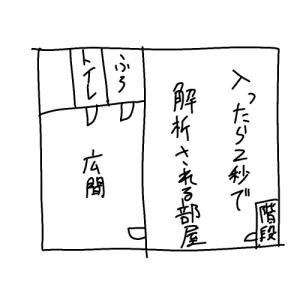 トイレ
ふろ
広間
入ったら2秒で
解析される部屋
階段